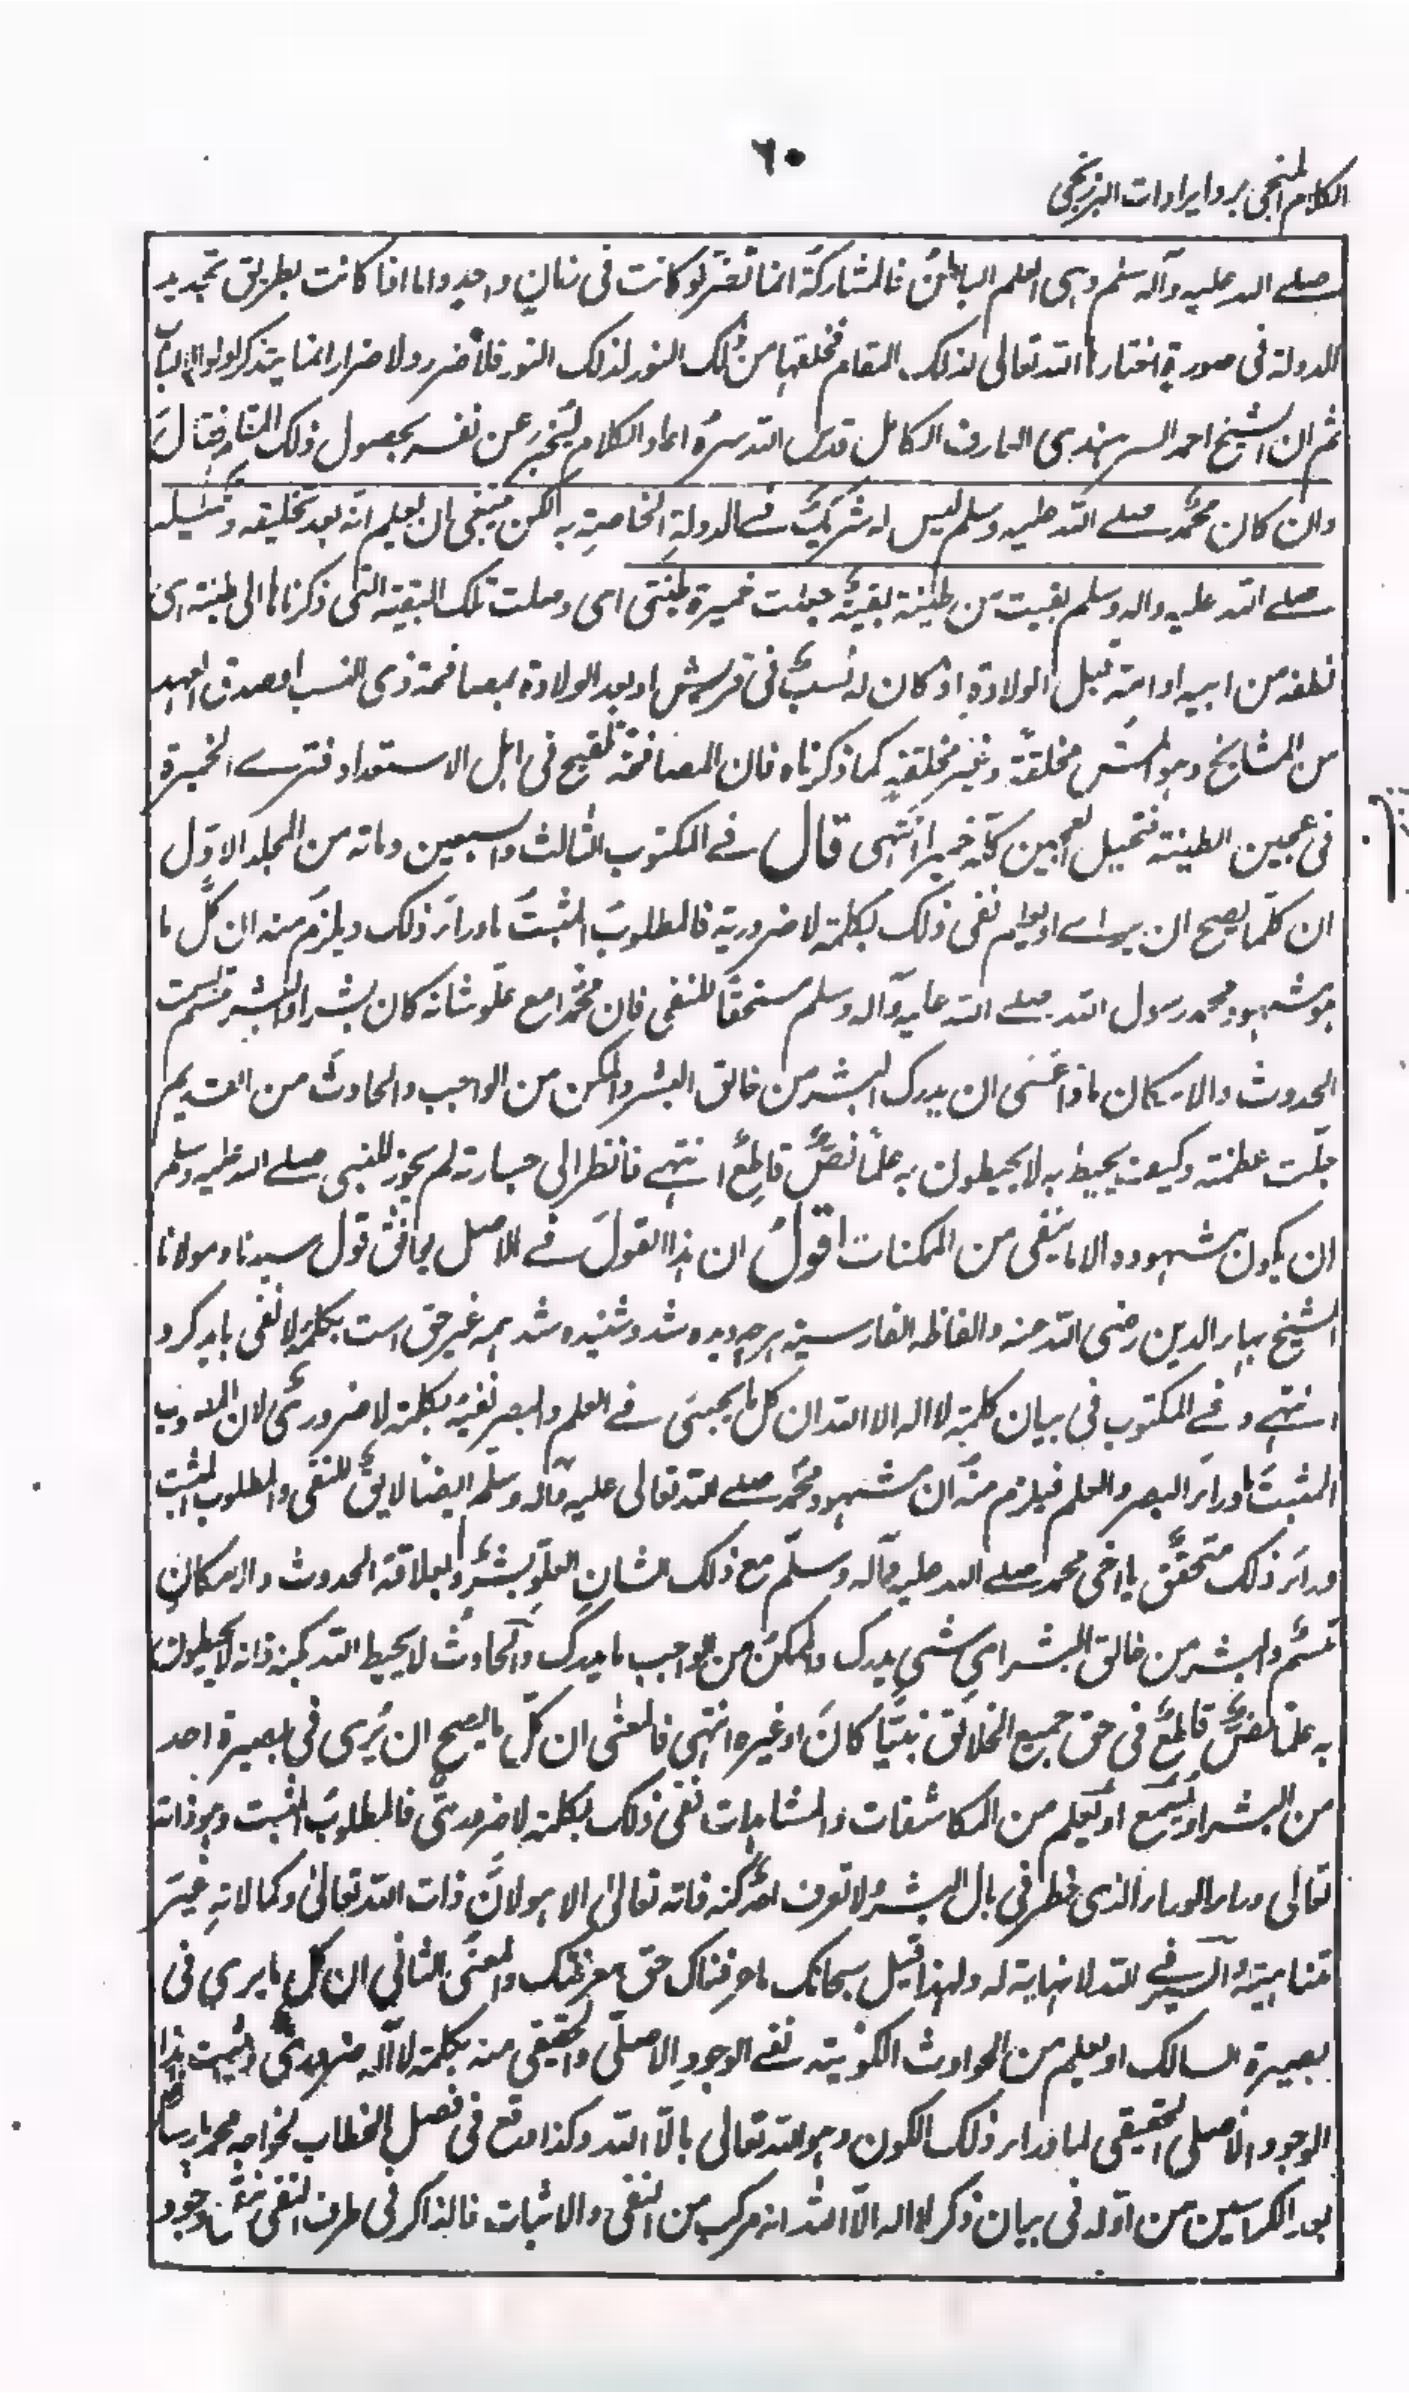 ٦٠
الكلام المنجى برد ايرادات البرزنجى
صلے الله عليه وآله وسلم وہى العلم الباطن فالمشاركة انما تضر لو كانت فى زمان واحد واما اذا كانت بطريق تجديد
الدولة فى صورة اختارها الله تعالى لذلك المقام فخلقها من ذلك النور لذلك النور فلا ضرر ولا ضرار انما يتذكر اولوا الالباب
ثم ان الشيخ احمد السرہندى العارف الكامل قدس الله سره اعاد الكلام ليخبر عن نفسه بحصول ذلك فقال
وان كان محمد صلے الله عليه وسلم ليس له شريك فے الدولة الخاصة به لكن ينبغى ان يعلم انه بعد تخليقه وتكميله
صلے الله عليه واله وسلم بقيت من طينة بقية جعلت خميرة طينتى اى وصلت تلك البقية التى ذكرناها الى طينته اى
نطفه من ابيه او امه قبل الولادة اذ كان له نسب فى قريش او بعد الولادة بمصافحة ذى النسب او صدق العهد
من المشايخ وہو المس مخلقة وغير مخلقة كما ذكرناه فان المصافحة تلقيح فى اہل الاستعداد فترے الخميرة
فى عجين الطينة فتحيل العجين كله خميرا انتہى قال فے المكتوب الثالث والسبعين ومائة من المجلد الاول
ان كلما يصح ان يراے او يعلم نفى ذلك بكلمة لا ضرورية فالمطلوب المثبت ماوراء ذلك ويلزم منه ان كل ما
ہو مشہود محمد رسول الله صلے الله عليه وآله وسلم مستحقا للنفى فان محمدا مع علو شانه كان بشرا والبشر متسم بسمت
الحدوث والامكان ماذا عسى ان يدرك البشر من خالق البشر والممكن من الواجب والحادث من القديم
جلت عظمته وكيف يحيط به لا يحيطون به علما نص قاطع انتہے فانظر الى جسارته لم يجوز للنبى صلے الله عليه وسلم
ان يكون مشہوده الا ما ينفى من الممكنات اقول ان ہذا القول فے الاصل يوافق قول سيدنا ومولانا
الشيخ بہاء الدين رضى الله عنه والفاظه الفارسية ہرچه ديده شد وشنيده شد ہمه غير حق است بكلمة لا نفى بايد كرد
انتہے وفے المكتوب فى بيان كلمة لا اله الا الله ان كل ما يجيئ فے العلم والبصر نفيه بكلمة لا ضرورى لان المطلوب
المثبت ماوراء البصر والعلم فيلزم منه ان مشہود محمد صلے الله تعالى عليه وآله وسلم ايضا لايق للنفى والمطلوب المثبت
وراء ذلك متحقق يا اخى محمد صلے الله عليه وآله وسلم مع ذلك الشان العلو بشر وبعلاقة الحدوث والامكان
متسم والبشر من خالق البشر اى شى يدرك والممكن من الواجب ما يدرك والحادث لا يحيط الله بكنه ذاته لا يحيطون
به علما نص قاطع فى حق جميع الخلائق نبيا كان او غيره انتہى فالمعنى ان كل ما يصح ان يرى فى بصيرة احد
من البشر او يسمع او يعلم من المكاشفات والمشاہدات نفى ذلك بكلمة لا ضرورى فالمطلوب المثبت وہو ذاته
تعالى وراء الوراء الذى خطر فى بال البشر لا تعرف احد كنه ذاته تعالى الا ہو لان ذات الله تعالى وكمالاته غير
متناہية والسير فے الله لا نہاية له ولہذا قيل سبحانك ما عرفناك حق معرفتك والمعنى الثانى ان كل ما يرى فى
بصيرة السالك او يعلم من الحوادث الكونية نفے الوجود الاصلى والحقيقى منه بكلمة لا اله ضرورى ويثبت ہذا
الوجود الاصلى الحقيقى لما وراء ذلك الكون وہو الله تعالى بالا الله وكذا وقع فى فصل الخطاب لخواجه محمد پارسا
بعد الكراسين من اوله فى بيان ذكر لا اله الا الله انه مركب من النفى والاثبات فالذاكر فى طرف النفى وجود